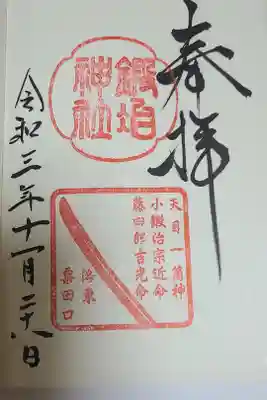 奉拝
鍛冶
神社
天目一箇神
小鍛冶宗近命
藤四郎吉光命
洛東
粟田口
令和三年十一月二十八日